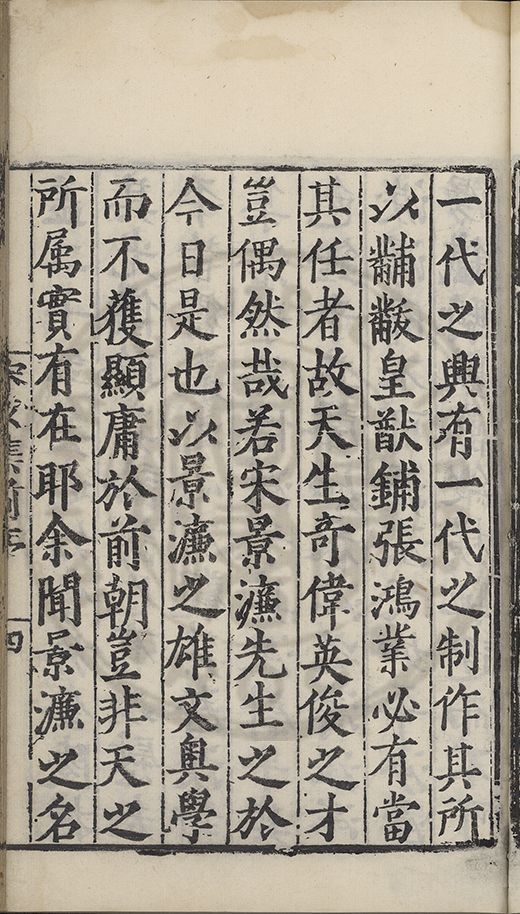 一代之興有一代之制作其所
以黼黻皇猷鋪張鴻業必有當
其任者故天生奇偉英俊之才
豈偶然哉若宋景濂先生之於
今日是也以景濂之雄文奧學
而不獲顯庸於前朝豈非天之
所属實有在耶余聞景濂之名
四